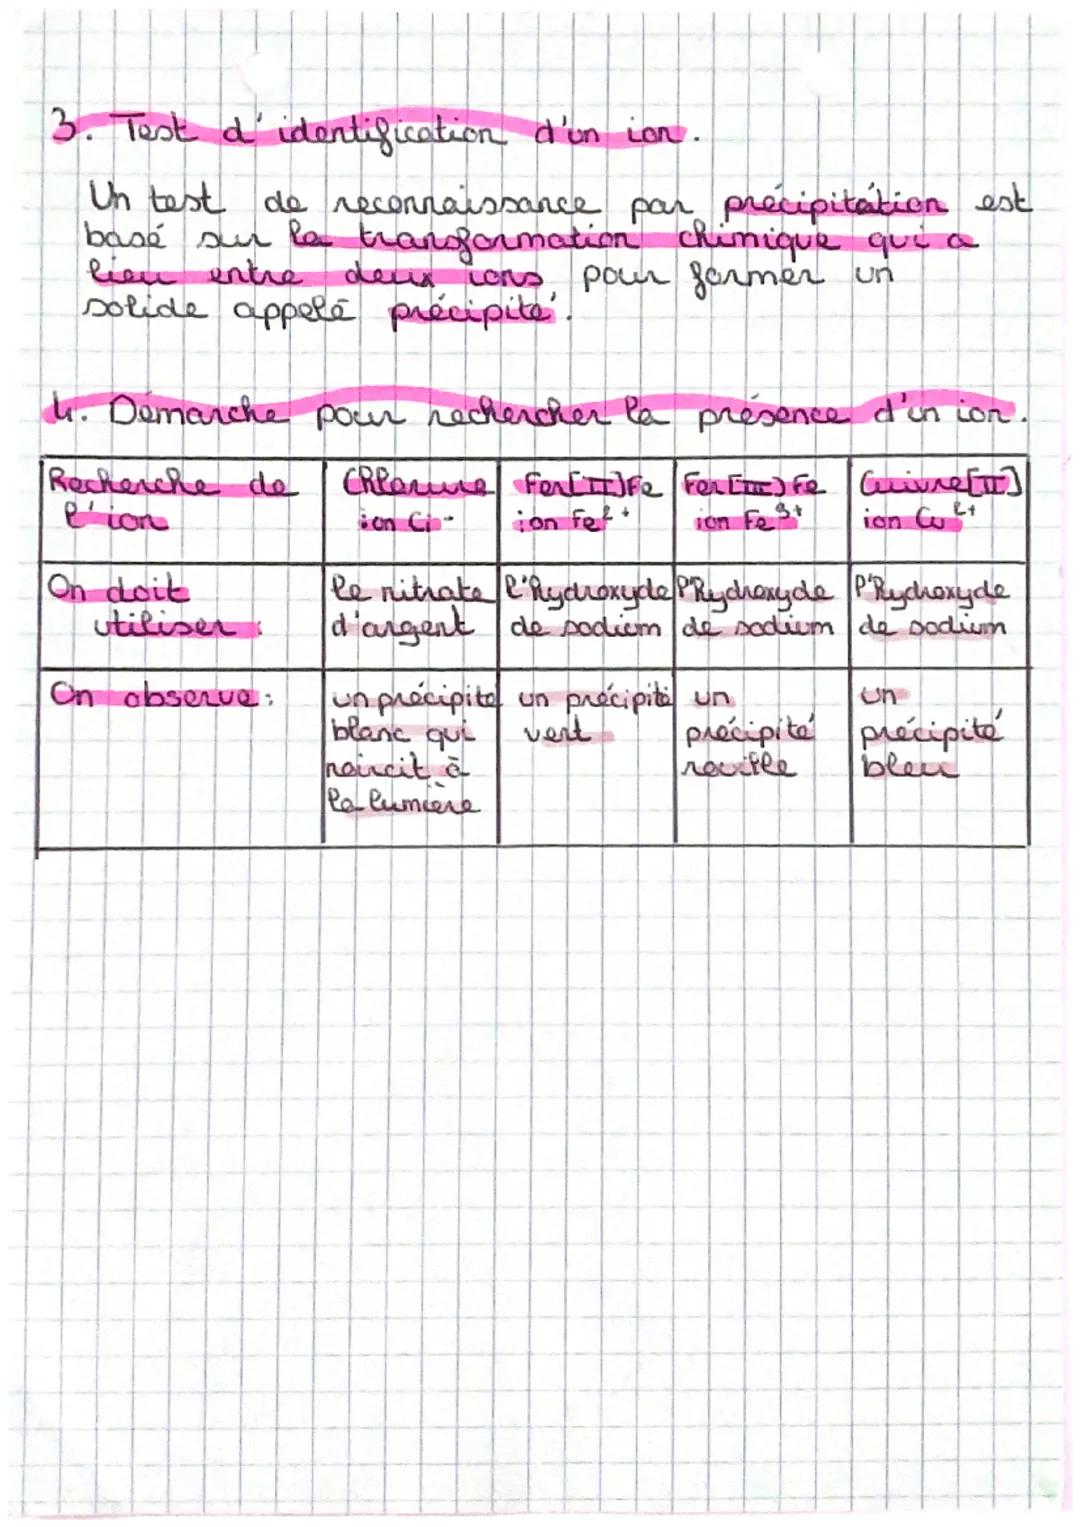 3. Test d'identification d'un ion.
Un test de reconnaissance par précipitation est
basé sur la transformation chimique qui a
lieu entre deux ions, pour former un
solide appelé précipité.
4. Démarche pour rechercher la présence d'un ion.
Recherche de l'ion
Chlorure ion Cl-
Fer[II]Fe ion Fe2+
Fer[III) Fe ion Fe3+
Cuivre[II] ion Cu2+
On doit utiliser :
le nitrate d'argent
l'hydroxyde de sodium
l'hydroxyde de sodium
l'hydroxyde de sodium
On observe :
un précipité blanc qui noircit à la lumière
un précipité vert
un précipité rouille
un précipité bleu